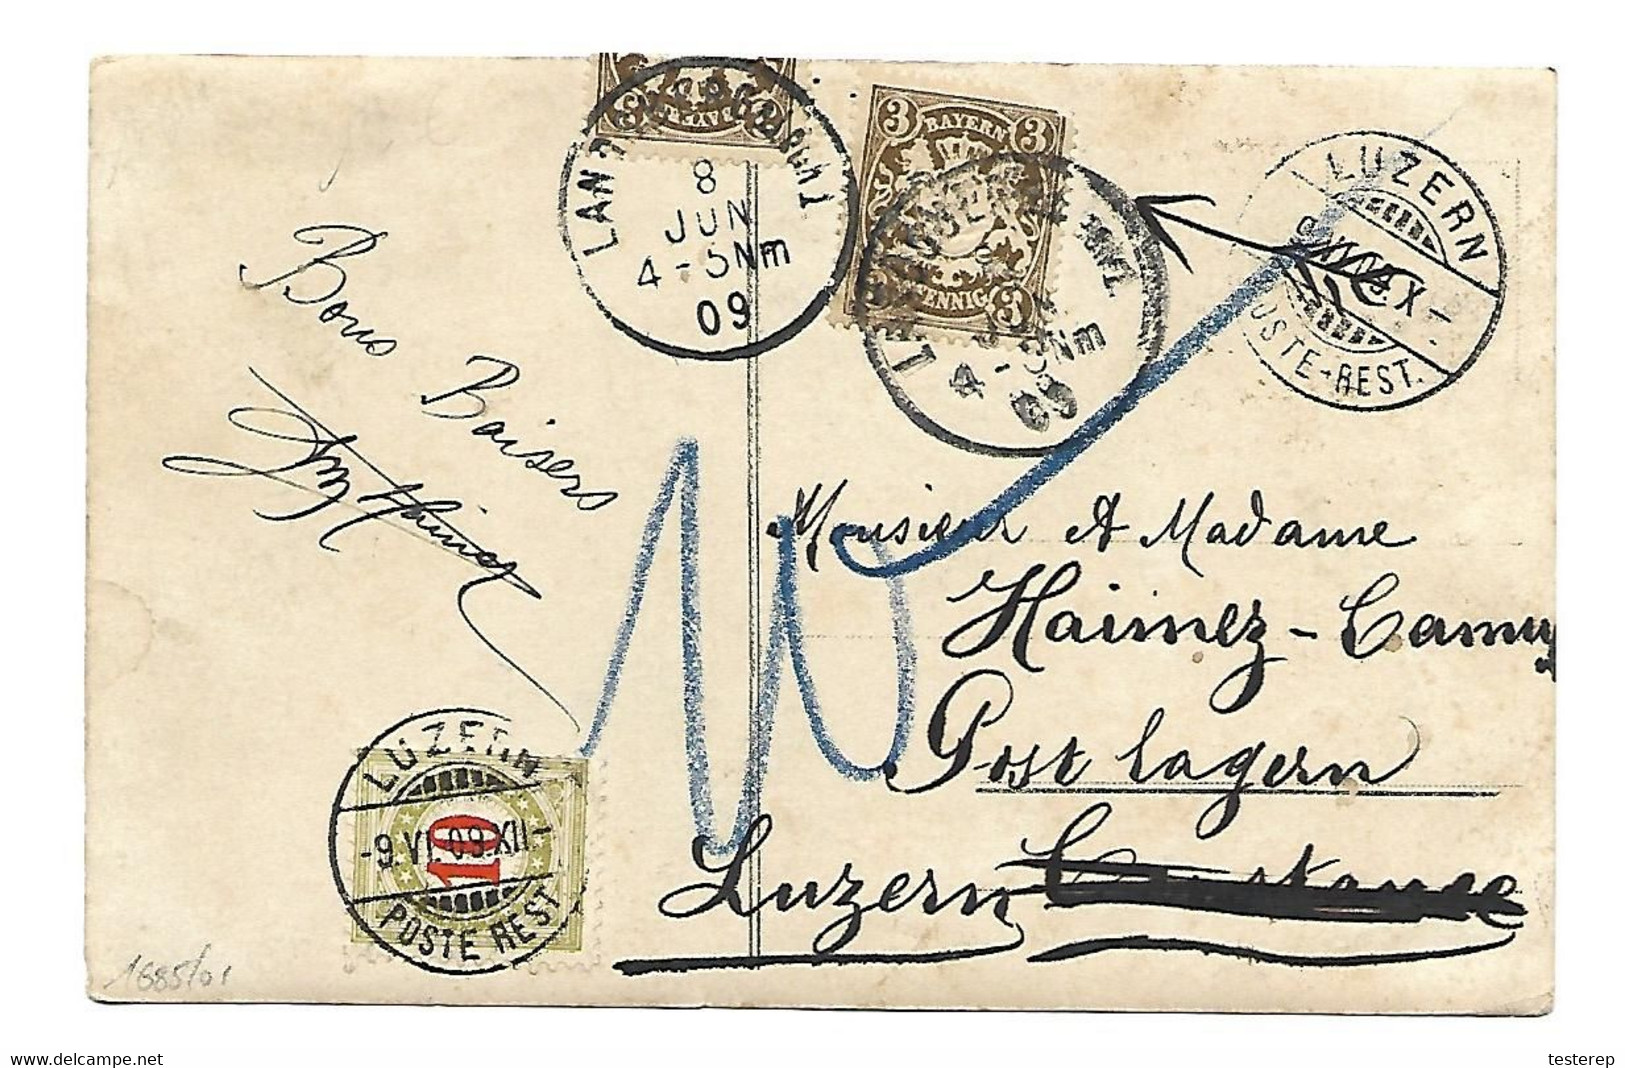 3 BAYERN 3
PFENNIG 3
8
JUN
4-5Nm
09
4-5Nm
09
LUZERN
POSTE-REST.
Bons Baisers
Monsieur et Madame
Haimez - Camus
Post lagern
Luzern Constance
10
LUZERN
-9.VI.09.XII-
10
POSTE REST.
1685/01
www.delcampe.net
testerep